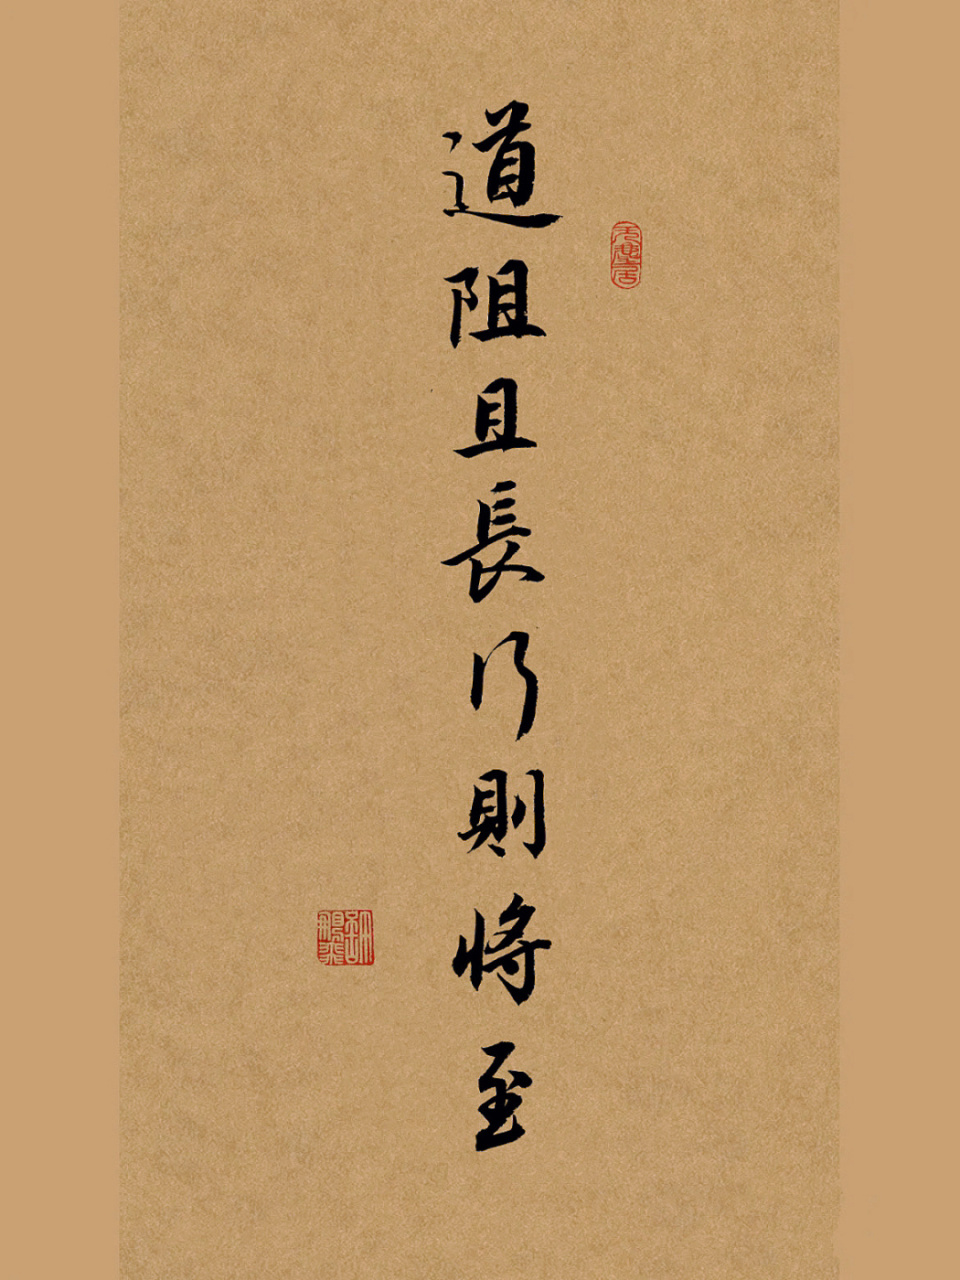 道阻且長行則將至